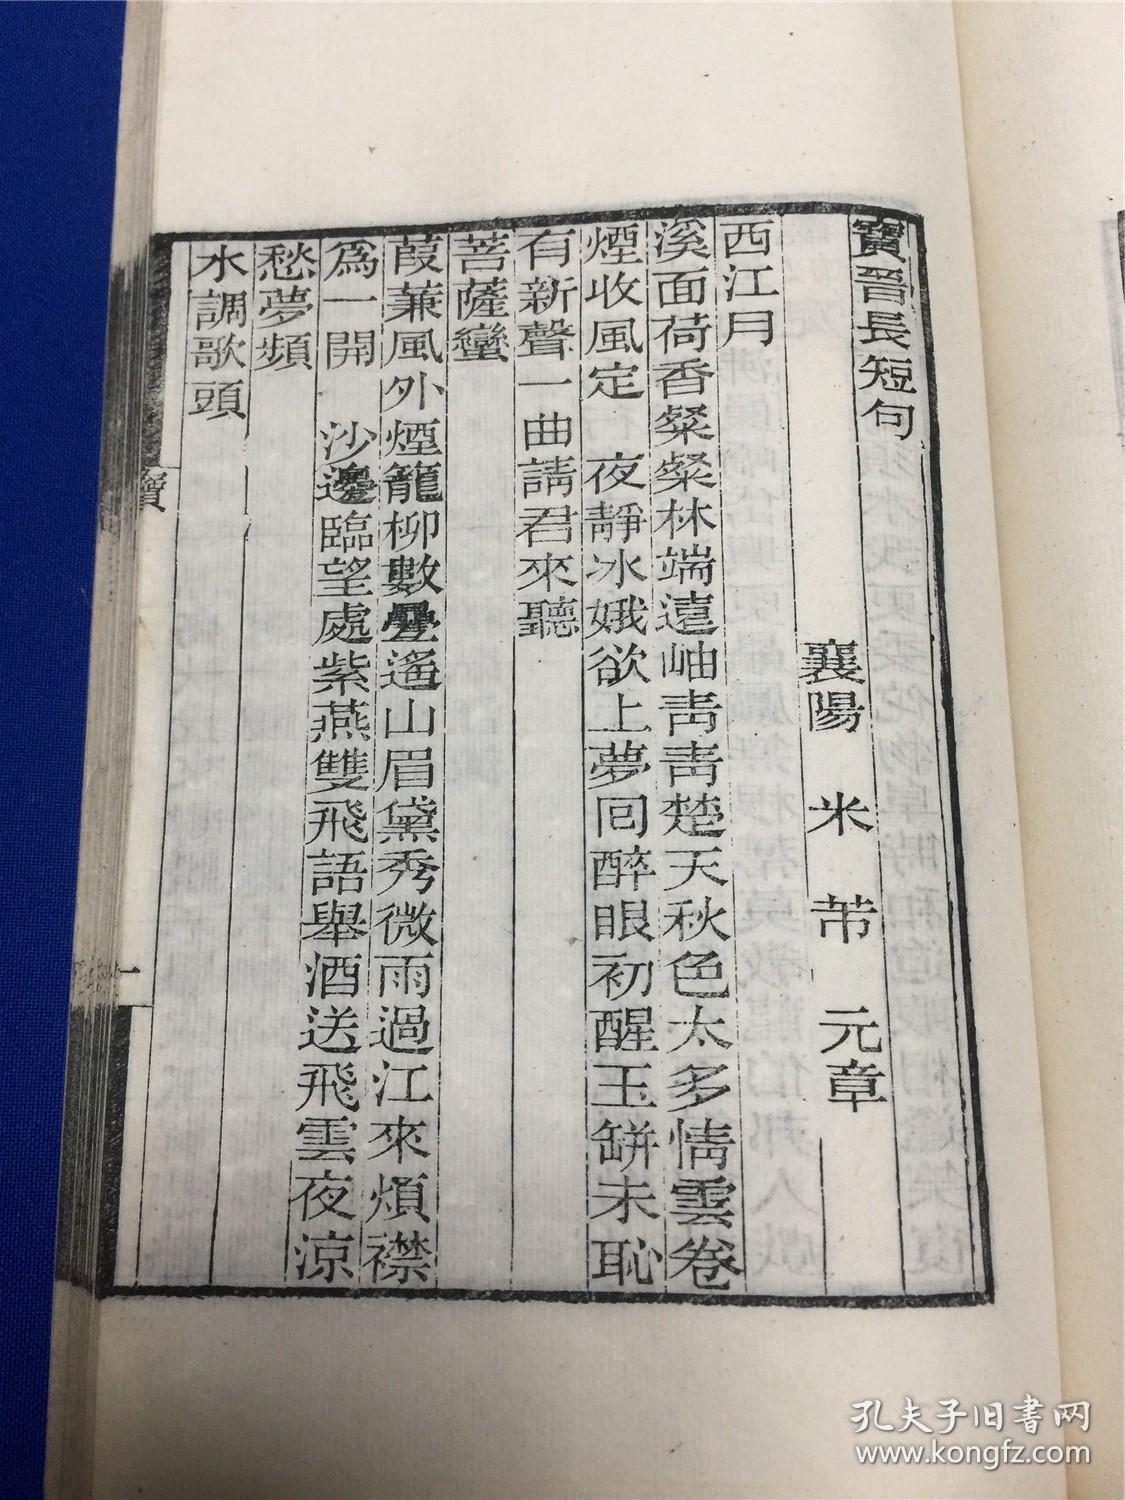 寶晉長短句
襄陽 米芾 元章
西江月
溪面荷香粲粲林端遠岫靑靑楚天秋色太多情雲卷
煙收風定 夜靜冰娥欲上夢回醉眼初醒玉缾未恥
有新聲一曲請君來聽
菩薩蠻
葭蒹風外煙籠柳數疊遙山眉黛秀微雨過江來煩襟
爲一開 沙邊臨望處紫燕雙飛語舉酒送飛雲夜涼
愁夢頻
水調歌頭
寶
一
孔夫子旧書网
www.kongfz.com